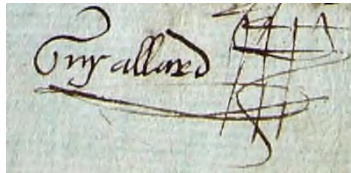 Guy allard